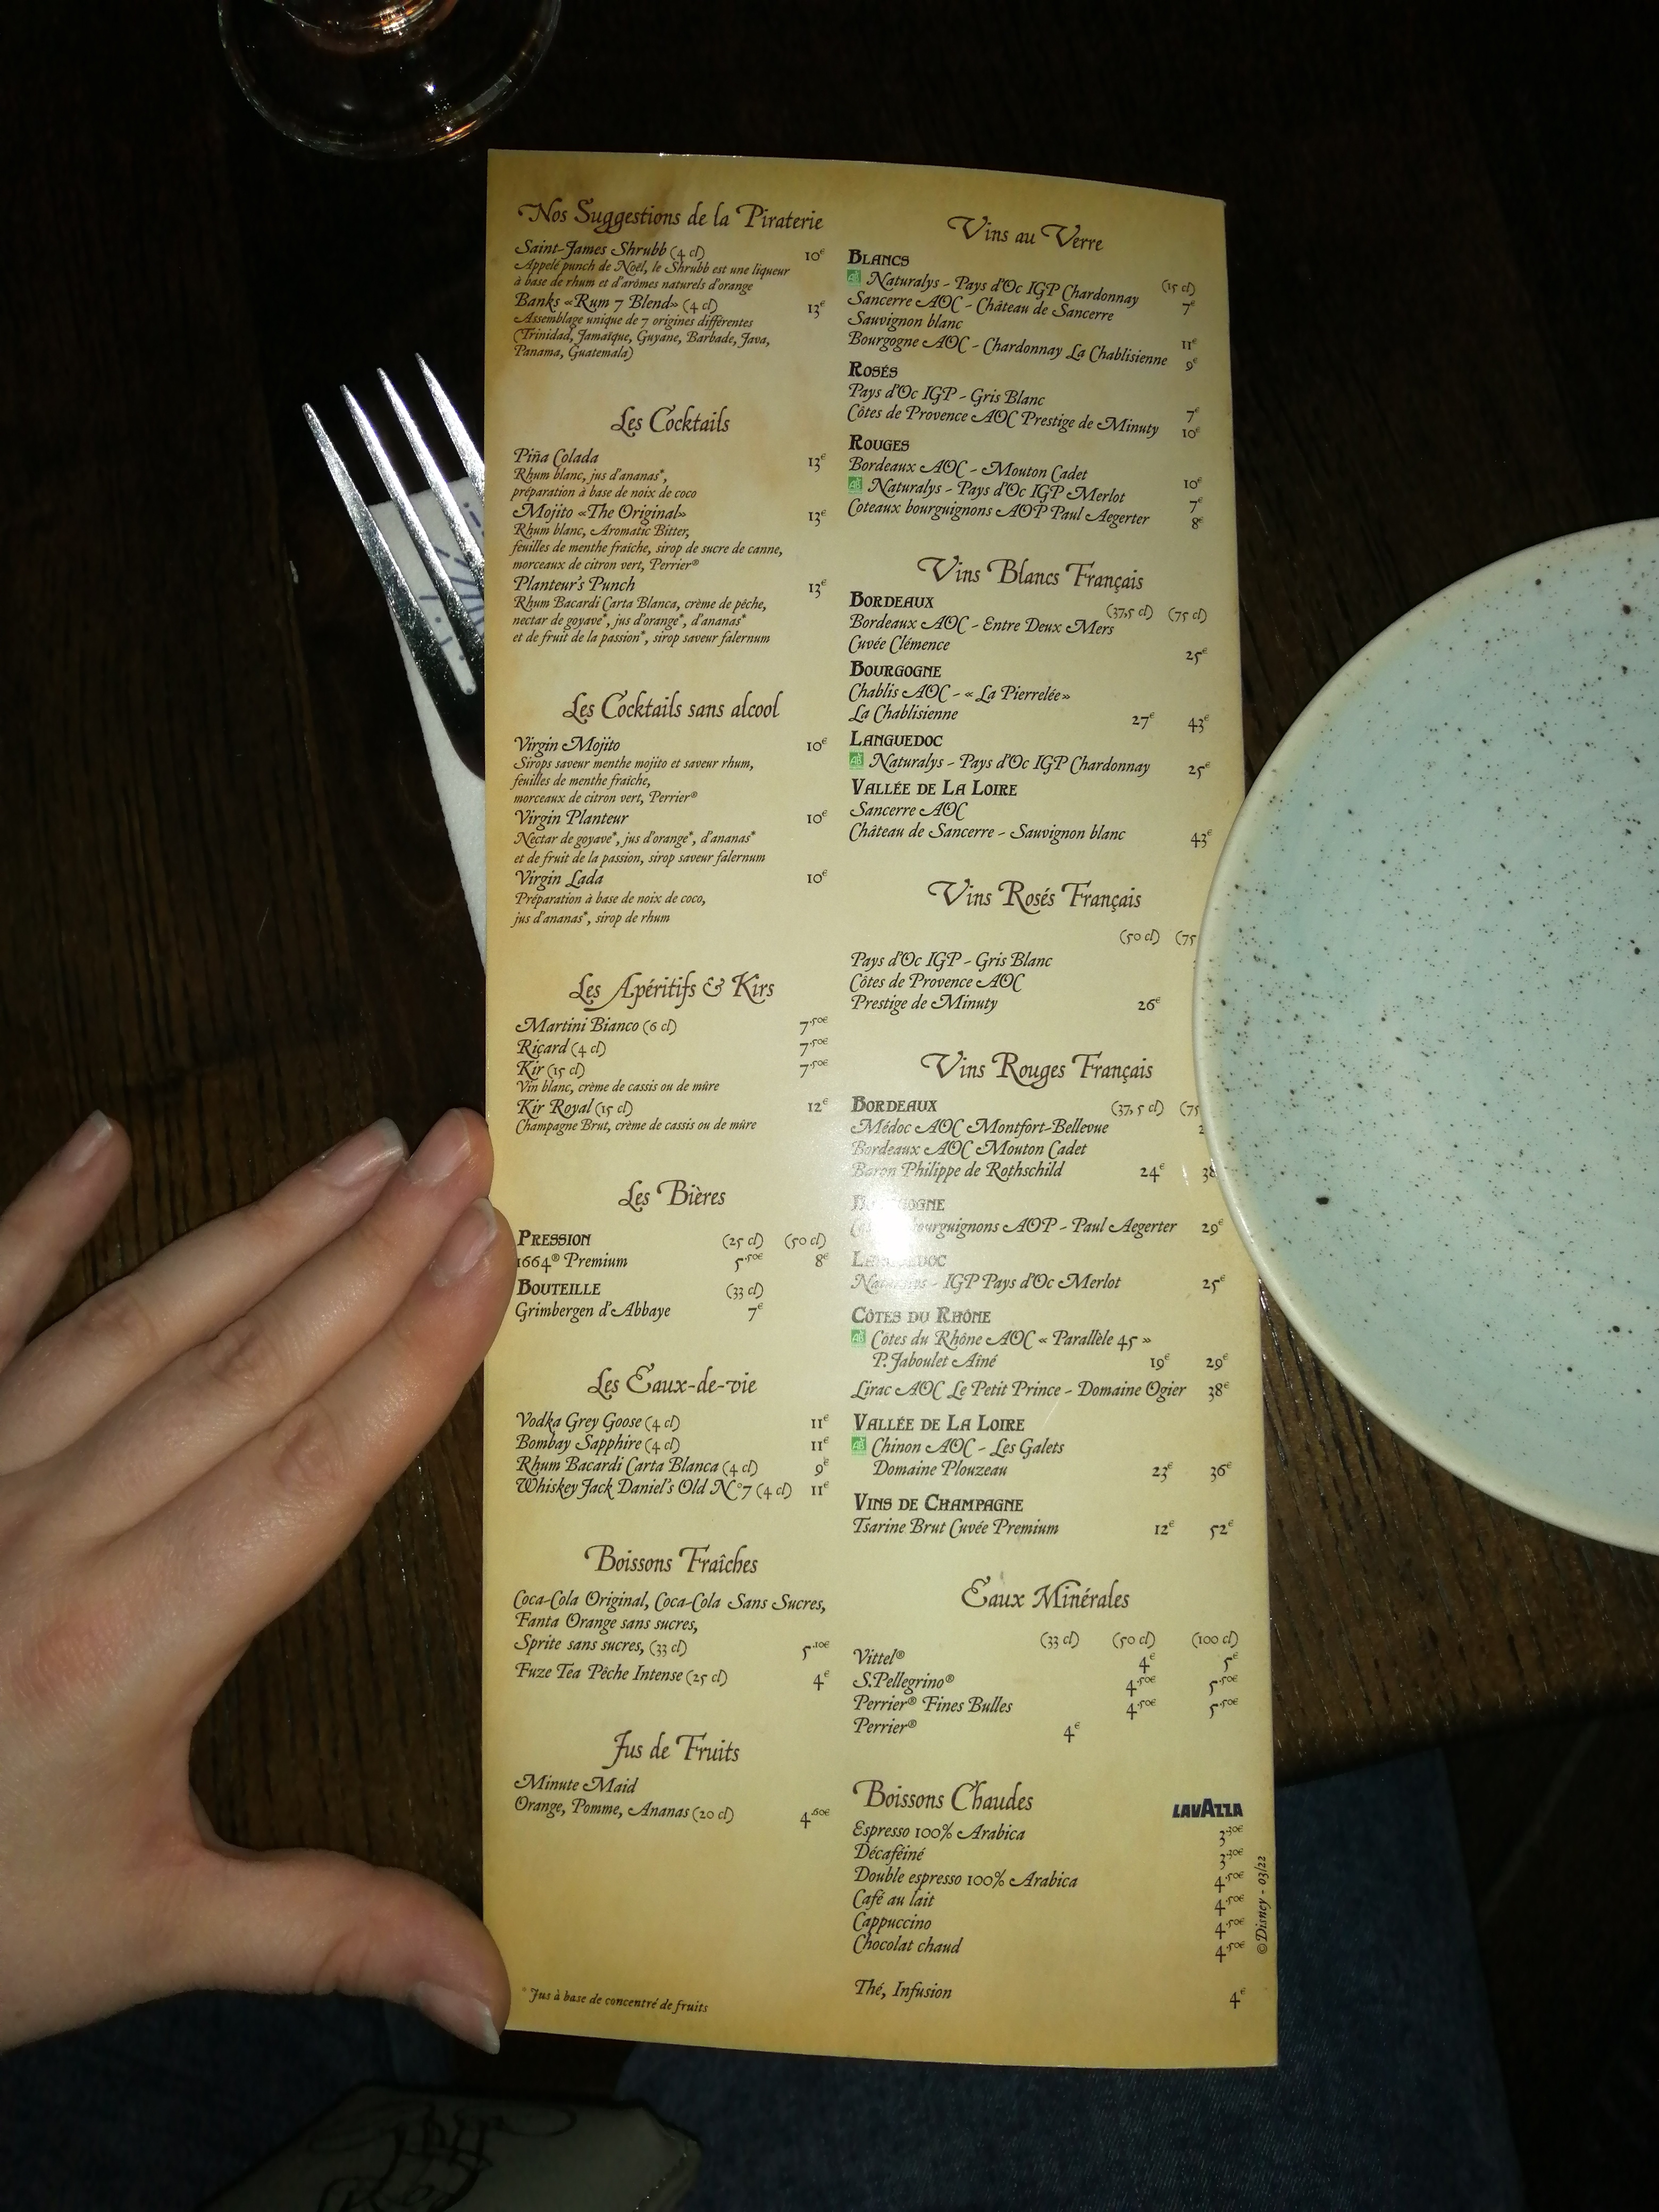 Nos Suggestions de la Piraterie
Saint-James Shrubb (4 cl) 10€
Appelé punch de Noël, le Shrubb est une liqueur
à base de rhum et d'arômes naturels d'orange
Banks «Rum 7 Blend» (4 cl) 13€
Assemblage unique de 7 origines différentes
(Trinidad, Jamaïque, Guyane, Barbade, Java,
Panama, Guatemala)
Les Cocktails
Piña Colada 13€
Rhum blanc, jus d'ananas*,
préparation à base de noix de coco
Mojito «The Original» 13€
Rhum blanc, Aromatic Bitter,
feuilles de menthe fraîche, sirop de sucre de canne,
morceaux de citron vert, Perrier®
Planteur's Punch 13€
Rhum Bacardi Carta Blanca, crème de pêche,
nectar de goyave*, jus d'orange*, d'ananas*
et de fruit de la passion*, sirop saveur falernum
Les Cocktails sans alcool
Virgin Mojito 10€
Sirops saveur menthe mojito et saveur rhum,
feuilles de menthe fraîche,
morceaux de citron vert, Perrier®
Virgin Planteur 10€
Nectar de goyave*, jus d'orange*, d'ananas*
et de fruit de la passion, sirop saveur falernum
Virgin Lada 10€
Préparation à base de noix de coco,
jus d'ananas*, sirop de rhum
Les Apéritifs & Kirs
Martini Bianco (6 cl) 7,50€
Ricard (4 cl) 7,50€
Kir (15 cl) 7,50€
Vin blanc, crème de cassis ou de mûre
Kir Royal (15 cl) 12€
Champagne Brut, crème de cassis ou de mûre
Les Bières
PRESSION (25 cl) (50 cl)
1664® Premium 5,50€ 8€
BOUTEILLE (33 cl)
Grimbergen d'Abbaye 7€
Les Eaux-de-vie
Vodka Grey Goose (4 cl) 11€
Bombay Sapphire (4 cl) 11€
Rhum Bacardi Carta Blanca (4 cl) 9€
Whiskey Jack Daniel's Old N°7 (4 cl) 11€
Boissons Fraîches
Coca-Cola Original, Coca-Cola Sans Sucres,
Fanta Orange sans sucres,
Sprite sans sucres, (33 cl) 5,10€
Fuze Tea Pêche Intense (25 cl) 4€
Jus de Fruits
Minute Maid
Orange, Pomme, Ananas (20 cl) 4,60€
* Jus à base de concentré de fruits
Vins au Verre
BLANCS (15 cl)
AB Naturalys - Pays d'Oc IGP Chardonnay 7€
Sancerre AOC - Château de Sancerre
Sauvignon blanc 11€
Bourgogne AOC - Chardonnay La Chablisienne 9€
ROSÉS
Pays d'Oc IGP - Gris Blanc 7€
Côtes de Provence AOC Prestige de Minuty 10€
ROUGES
Bordeaux AOC - Mouton Cadet 10€
AB Naturalys - Pays d'Oc IGP Merlot 7€
Coteaux bourguignons AOP Paul Aegerter 8€
Vins Blancs Français
BORDEAUX (37,5 cl) (75 cl)
Bordeaux AOC - Entre Deux Mers
Cuvée Clémence 25€
BOURGOGNE
Chablis AOC - « La Pierrelée»
La Chablisienne 27€ 43€
LANGUEDOC
AB Naturalys - Pays d'Oc IGP Chardonnay 25€
VALLÉE DE LA LOIRE
Sancerre AOC
Château de Sancerre - Sauvignon blanc 43€
Vins Rosés Français
(50 cl) (75
Pays d'Oc IGP - Gris Blanc
Côtes de Provence AOC
Prestige de Minuty 26€
Vins Rouges Français
BORDEAUX (37,5 cl) (75
Médoc AOC Montfort-Bellevue
Bordeaux AOC Mouton Cadet
Baron Philippe de Rothschild 24€ 38
bourguignons AOP - Paul Aegerter 29€
LANGUEDOC
Naturalys - IGP Pays d'Oc Merlot 25€
CÔTES DU RHÔNE
AB Côtes du Rhône AOC « Parallèle 45 »
P. Jaboulet Aîné 19€ 29€
Lirac AOC Le Petit Prince - Domaine Ogier 38€
VALLÉE DE LA LOIRE
AB Chinon AOC - Les Galets
Domaine Plouzeau 23€ 36€
VINS DE CHAMPAGNE
Tsarine Brut Cuvée Premium 12€ 52€
Eaux Minérales
(33 cl) (50 cl) (100 cl)
Vittel® 4€ 5€
S.Pellegrino® 4,50€ 5,50€
Perrier® Fines Bulles 4,50€ 5,50€
Perrier® 4€
Boissons Chaudes LAVAZZA
Espresso 100% Arabica 3,30€
Décaféiné 3,30€
Double espresso 100% Arabica 4,50€
Café au lait 4,50€
Cappuccino 4,50€
Chocolat chaud 4,50€
Thé, Infusion 4€
©Disney - 03/22